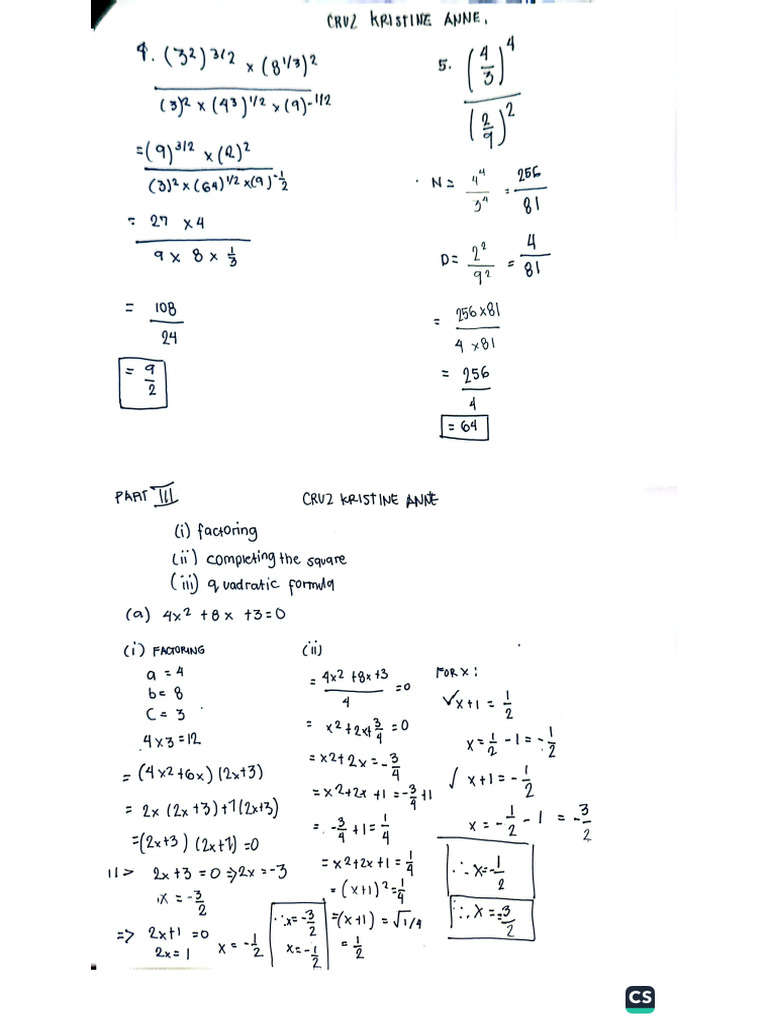 CRUZ KRISTINE ANNE.
4. (3²)^3/2 × (8^1/3)²
(3)² × (4³)^1/2 × (9)^-1/2
=(9)^3/2 × (2)²
(3)² × (64)^1/2 × (9)^-1/2
= 27 × 4
9 × 8 × 1/3
= 108
24
= 9
2
5. (4/3)⁴
(2/9)²
N = 4⁴/3⁴ = 256/81
D = 2²/9² = 4/81
= 256×81
4 ×81
= 256
4
= 64
PART III
CRUZ KRISTINE ANNE
(i) factoring
(ii) completing the square
(iii) quadratic formula
(a) 4x² +8x +3=0
(i) FACTORING
a = 4
b= 8
C= 3
4x3=12
= (4x²+6x) (2x+3)
= 2x (2x+3)+1(2x+3)
=(2x+3) (2x+1)=0
11> 2x+3 =0 ⇒ 2x=-3
x = -3/2
=> 2x+1 =0
2x= 1
x = -1/2
∴x=-3/2
x=-1/2
(ii)
= 4x² +8x+3/4 =0
= x²+2x+3/4 =0
= x²+2x =-3/4
= x²+2x +1 =-3/4+1
= -3/4 +1=1/4
= x²+2x+1 =1/4
= (x+1)²=1/4
=(x+1) =√1/4
= 1/2
FOR X:
✓x+1 = 1/2
x= 1/2 -1 = -1/2
√ x+1 = -1/2
x= -1/2 -1 = -3/2
∴ x=-1/2
∴ x = -3/2
CS